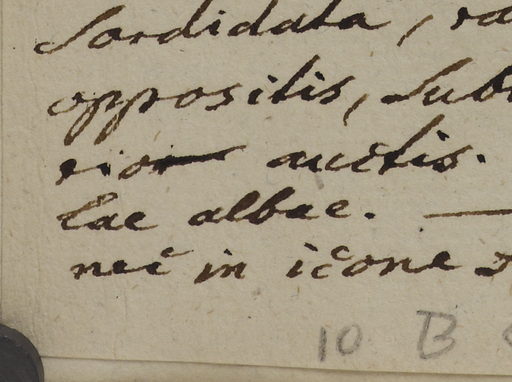 Sordidata, ra
oppositis, Sub
rior auctis.
lae albae. —
nec in icone
10 B